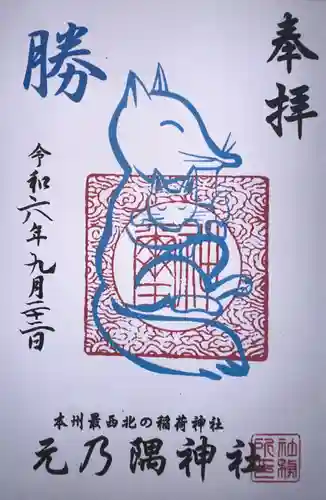 奉拝
勝
令和六年九月二十二日
本州最西北の稲荷神社
元乃隅神社